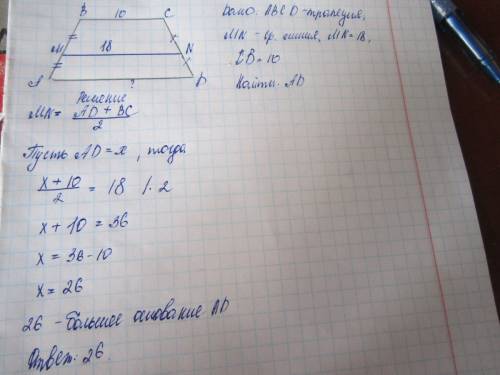 B 10 C
M 18 N
A ? D
Дано: ABCD - трапеция,
MN - ср. линия, MN=18,
CB = 10
Найти: AD
Решение
MN = AD + BC / 2
Пусть AD = x, тогда
x + 10 / 2 = 18 |· 2
x + 10 = 36
x = 36 - 10
x = 26
26 - большее основание AD
Ответ: 26.